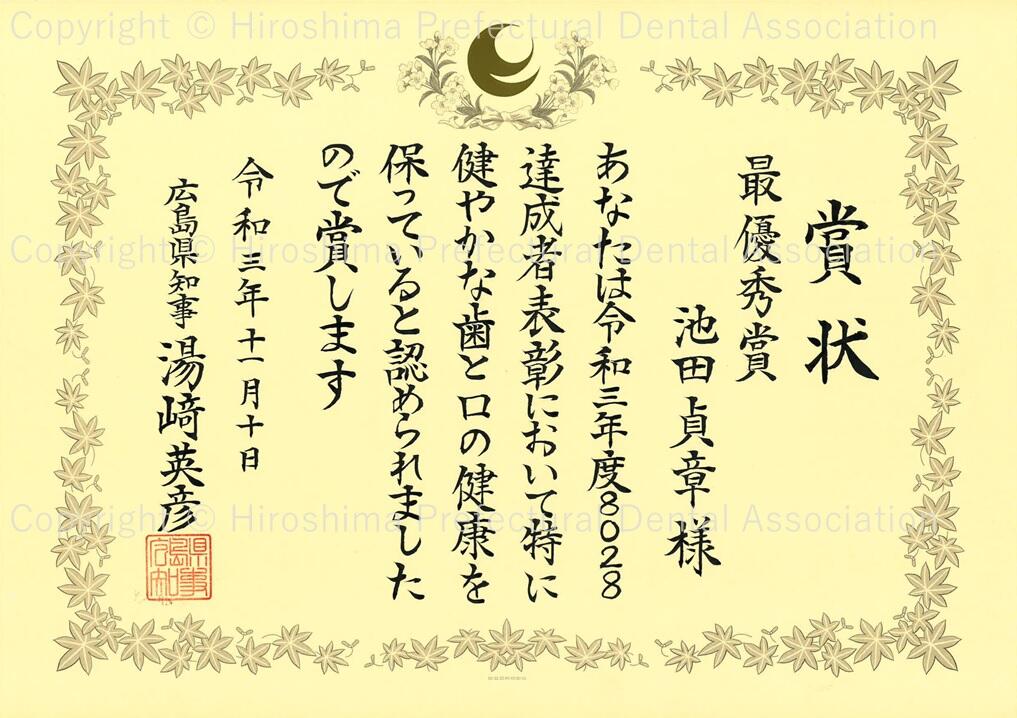 賞状
最優秀賞
池田貞章様
あなたは令和三年度8028
達成者表彰において特に
健やかな歯と口の健康を
保っていると認められました
ので賞します
令和三年十一月十日
広島県知事 湯﨑英彦
Copyright © Hiroshima Prefectural Dental Association
Copyright © Hiroshima Prefectural Dental Association
Copyright © Hiroshima Prefectural Dental Association